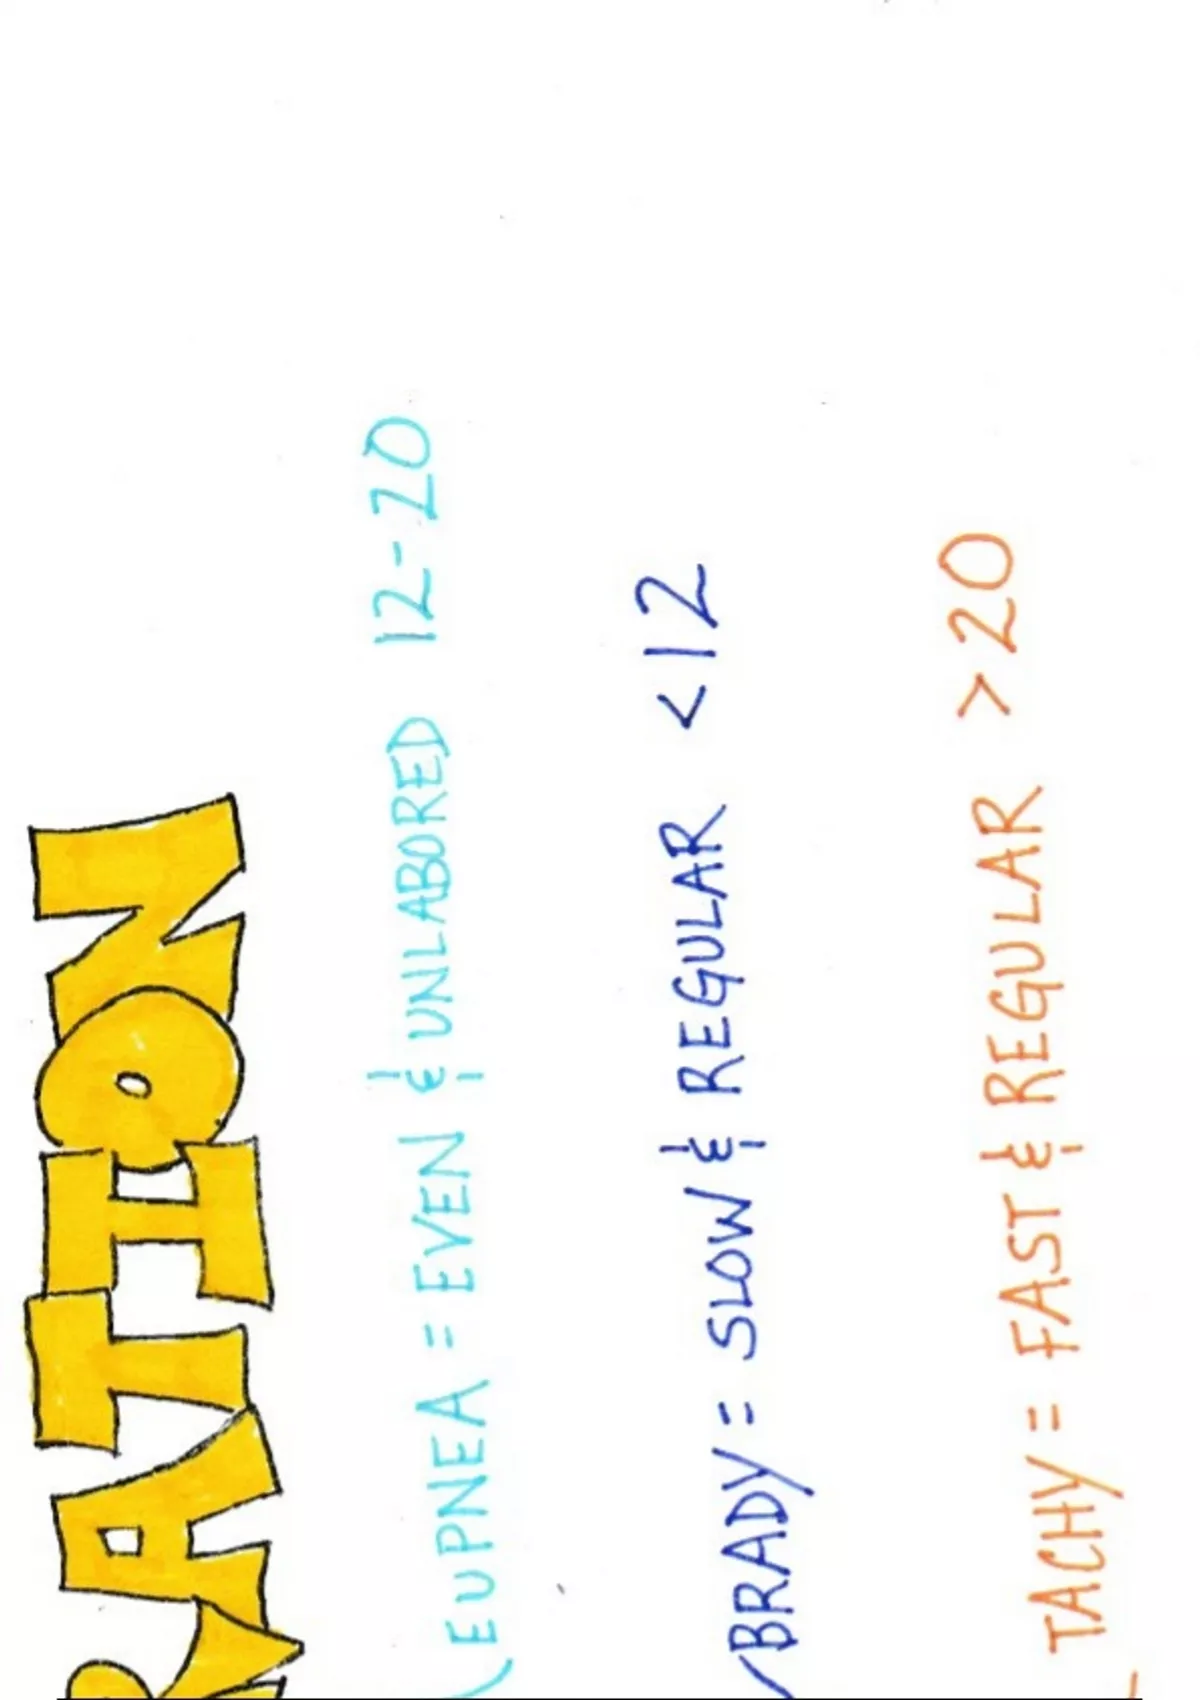 RATION
EUPNEA = EVEN & UNLABORED 12-20
BRADY = SLOW & REGULAR <12
TACHY = FAST & REGULAR >20